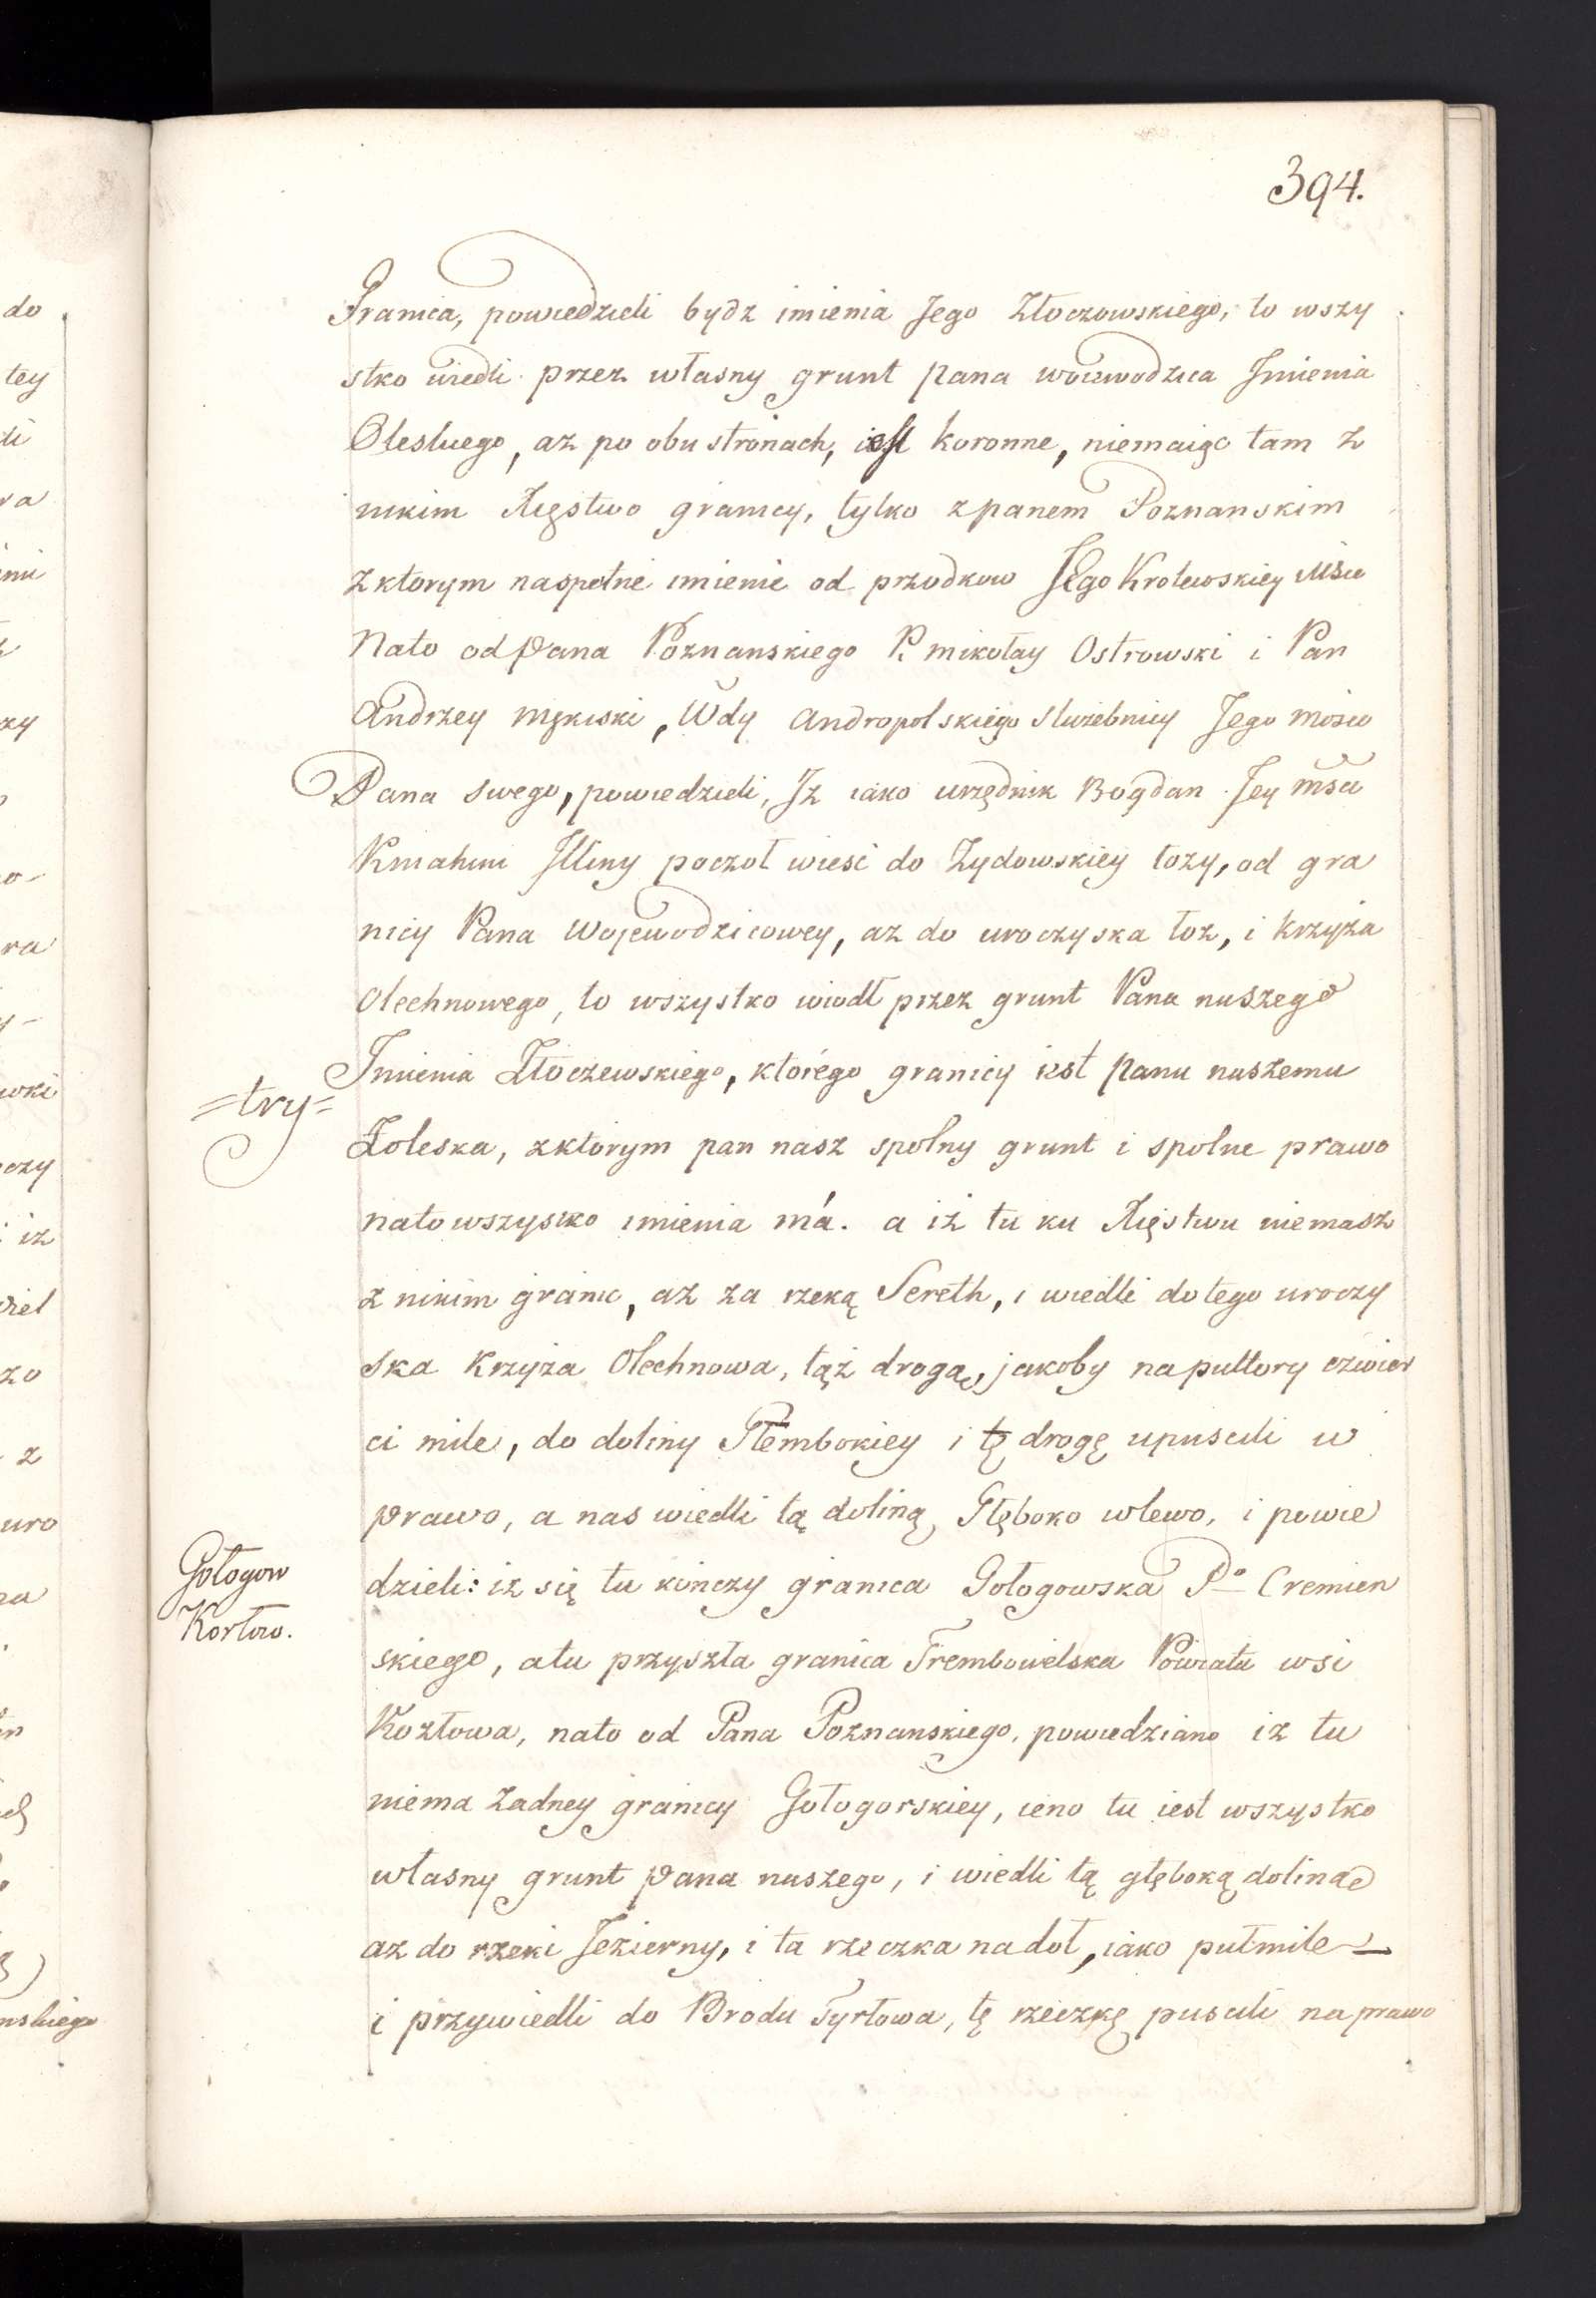 394.
Granica, powiedzieli bydz imienia Jego Złoczowskiego, to wszy
stko wiedli przez własny grunt pana woiewodzica Imienia
Oleskiego, az po obu stronach, iest koronne, niemaiąc tam z
nikim Xięstwo granicy, tylko z panem Poznanskim
z ktorym naspełne imienie od przodkow Jego Krolewskiey Msci
Nato od Pana Poznanskiego P. mikołay Ostrowski i Pan
Andrzey Mękiski, Wdy Andropolskiego Służebnicy Jego mosci
Pana swego, powiedzieli, Iz iako urzędnik Bogdan Jey Msci
Kniahini Illiny poczoł wiesc do Zydowskiey łozy, od gra
nicy Pana Wojewodzicowey, az do uroczyska łoz, i krzyża
Olechnowego, to wszystko wiodł przez grunt Pana naszego
Imienia Złoczewskiego, ktorego granicy iest panu naszemu
=try=
Zoleska, z ktorym pan nasz spolny grunt i spolne prawo
nato wszysko imienia má. a iż tu ku Xięstwu niemasz
z nikim granic, az za rzeką Sereth, i wiedli do tego uroczy
ska Krzyża Olechnowa, tąż drogą, jakoby na puttory czwier
ci mile, do doliny Głembokiey i tę drogę upuscili w
prawo, a nas wiedli tą doliną Głęboko wlewo, i powie
Gołogow
Korłow.
dzieli: iz się tu kończy granica Gołogowska Po Cremien
skiego, a tu przyszła granica Trembowelska Powiatu wsi
Kozłowa, nato od Pana Poznanskiego, powiedziano iz tu
niema Zadney granicy Gołogorskiey, ieno tu iest wszystko
własny grunt Pana naszego, i wiedli tą głęboką doliną
az do rzeki Jezierny, i ta rzeczka nadoł, iako pułmile
i przywiedli do Brodu Tyrłowa, tę rzeczkę puscili na prawo